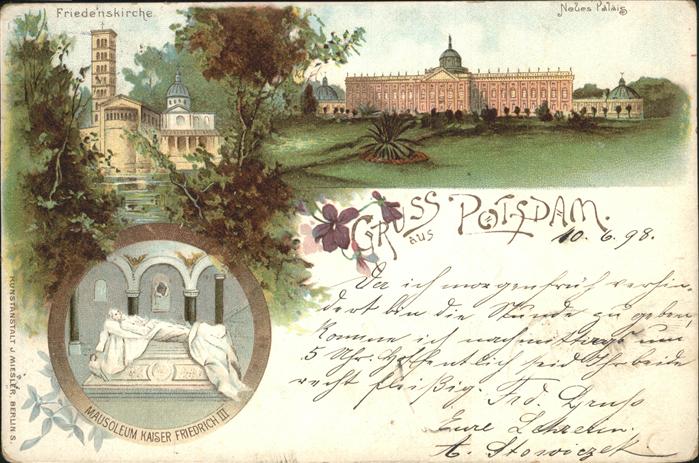 Friedenskirche.
Neues Palais
GRUSS aus POTSDAM.
10. 6. 98.
Da ich morgen früh verhin-
dert bin die Stunde zu geben
komme ich nachmittags um
5 Uhr. Hoffentlich seid Ihr beide
recht fleißig. Frd. Gruß
Eure Lehrerin.
A. Stowiczek
MAUSOLEUM KAISER FRIEDRICH III
KUNSTANSTALT J. MIESLER, BERLIN S.